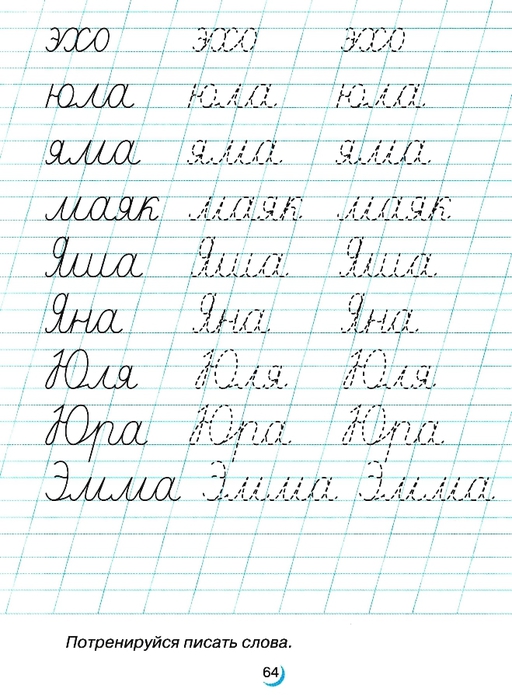 эхо эхо эхо
юла юла юла
яма яма яма
маяк маяк маяк
Яша Яша Яша
Яна Яна Яна
Юля Юля Юля
Юра Юра Юра
Эмма Эмма Эмма
Потренируйся писать слова.
64